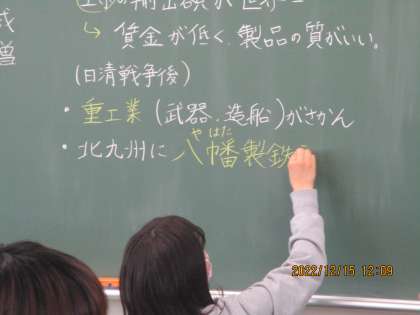 の輸出額が世界一
↳ 賃金が低く、製品の質がいい。
増
(日清戦争後)
・重工業 (武器、造船)がさかん
やはた
・北九州に 八幡製鉄
2022/12/15 12:09